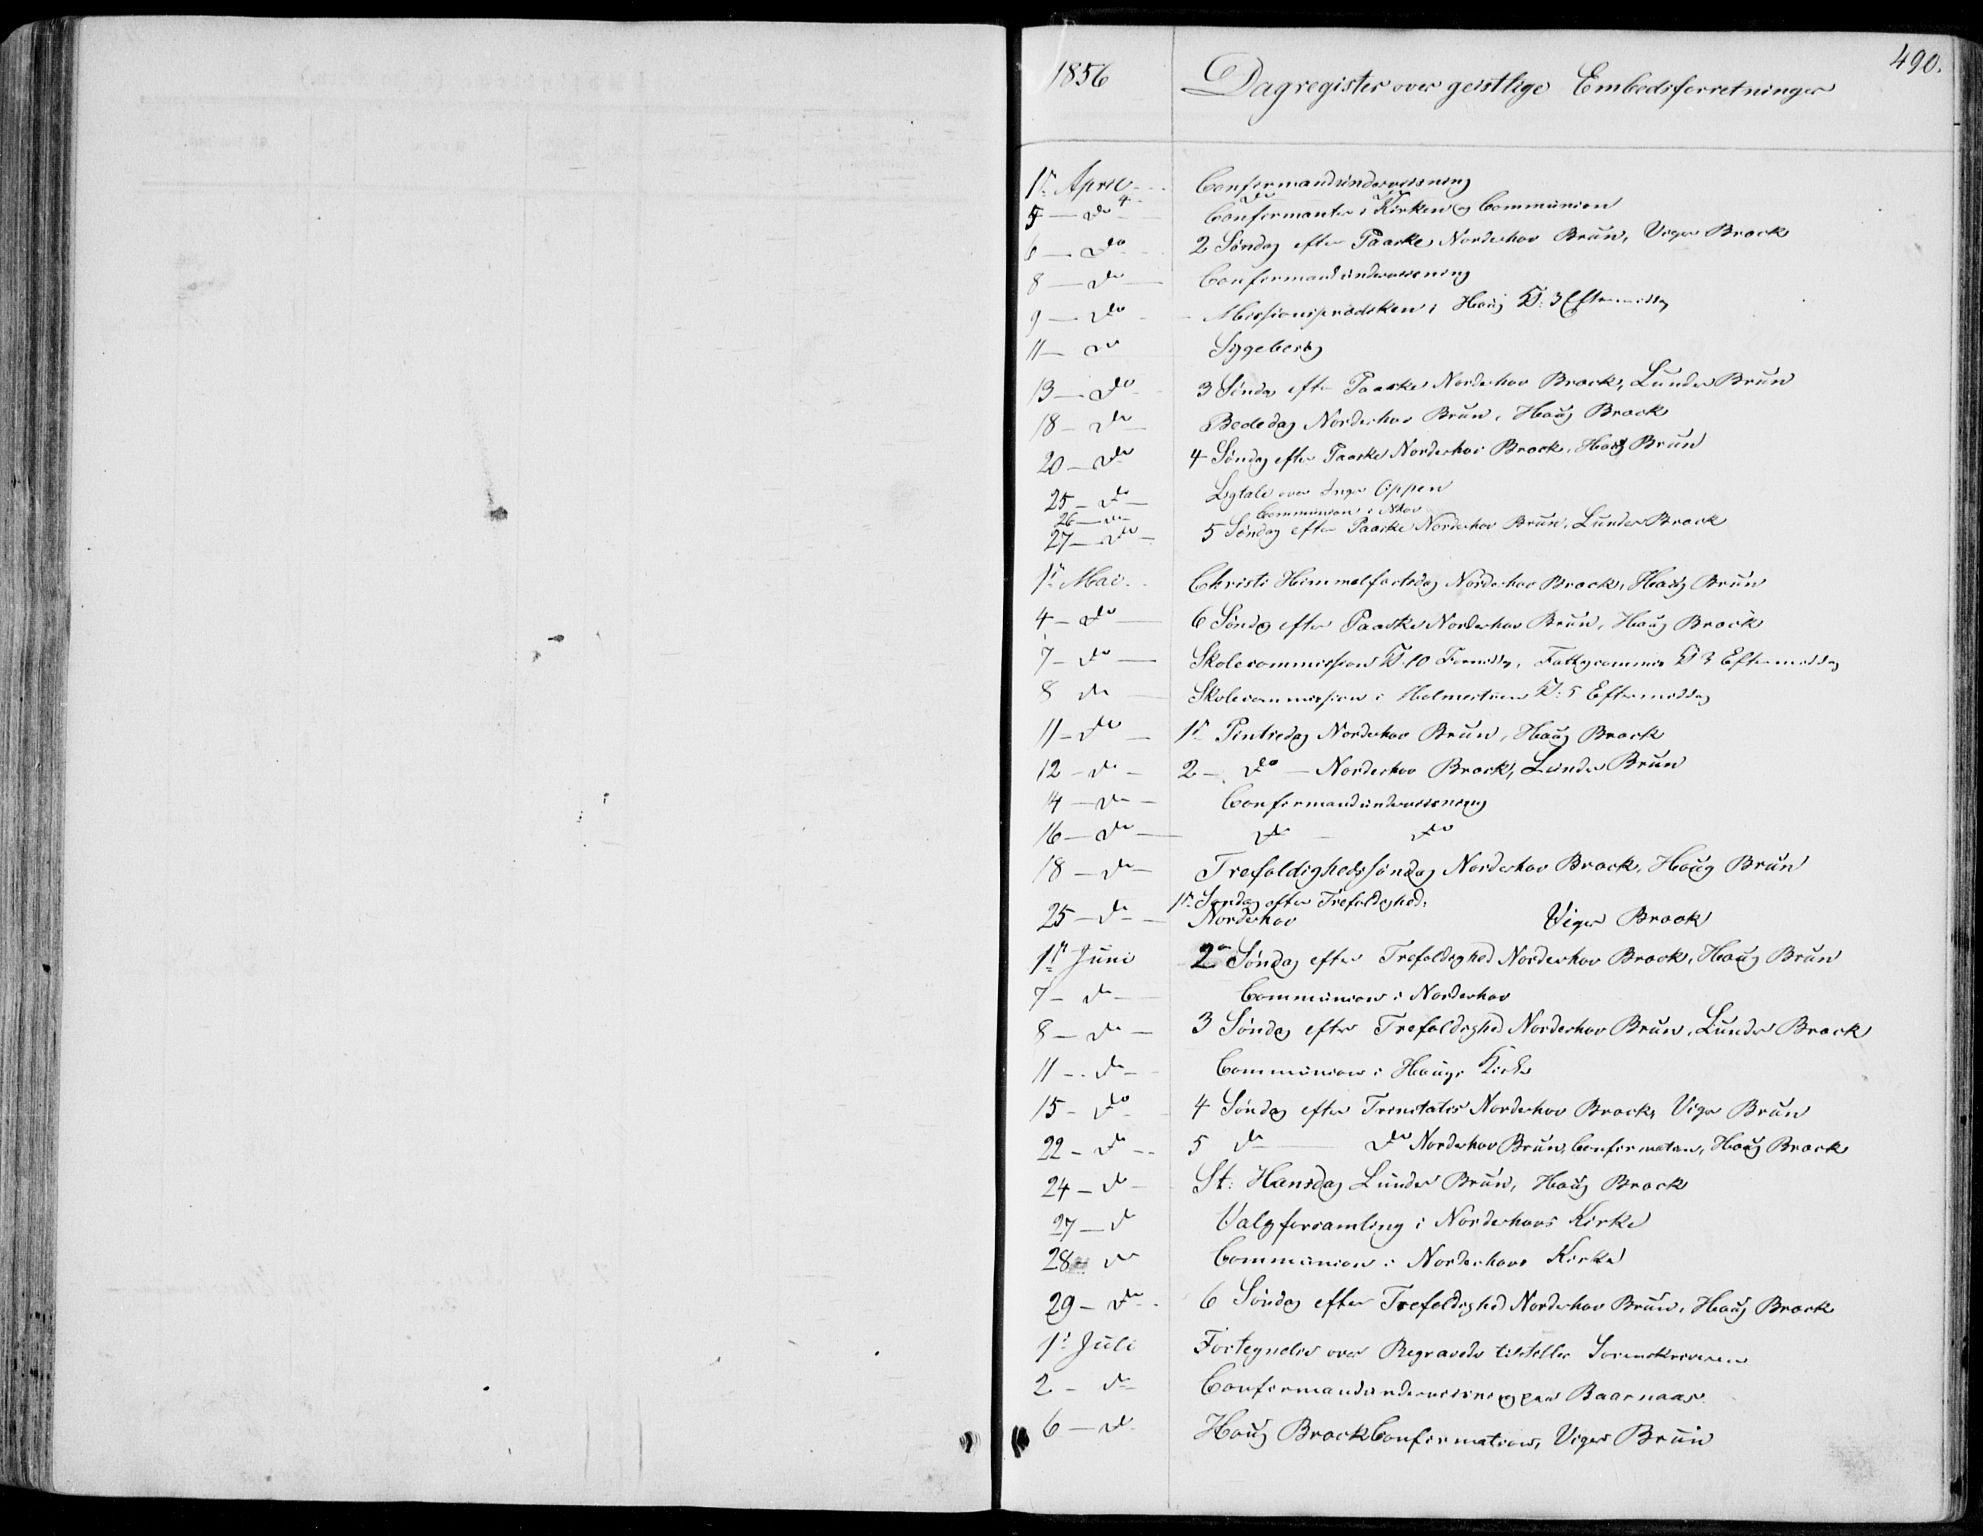 490.
1856 Dagregister over geistlige Embedsforretninger
1ste April Confirmandundervisning
4 do do
5 do Confirmanter i Kirken og Communion
6 do 2 Søndag efter Paaske Norderhov Brun, Viger Brock
8 do Confirmandundervisning
9 do Missionsprædiken i Houg Kl: 3 Eftermiddag
11 do Syge
13 do 3 Sønda efter Paaske Norderhov Brock, Lunder Brun
18 do Bededag Norderhov Brun, Houg Brock
20 do 4 Søndag efter Paaske Norderhov Brock, Houg Brun
25 do Ligtale over Inger Oppen
26 do Communion i Nhov
27 do 5 Søndag efter Paaske Norderhov Brun, Lunder Brock
1ste Mai Christi Himmelfartsdag Norderhov Brock, Houg Brun
4 do 6 Søndag efter Paaske Norderhov Brun, Houg Brock
7 do Skolecommission Kl. 10 Formiddag, Kl 3 Eftermiddag
8 do Skolecommission i Kl: 5 Eftermiddag
11 do 1ste Pintsedag Norderhov Brun, Houg Brock
12 do 2 do Norderhov Brock, Lunder Brun
14 do Confirmandundervisning
16 do do do
18 do Trefoldighedssøndag Norderhov Brock, Houg Brun
1ste Søndag efter Trefoldighed.
25 do Norderhov Viger Brock
1ste Juni 2den Søndag efter Trefoldighed Norderhov Brock, Houg Brun
7 do Communion i Norderhov
8 do 3 Søndag efter Trefoldighed Norderhov Brun, Lunder Brock
11 do Communion i Hougs Kirke
15 do 4 Søndag efter Trinitatis Norderhov Brock, Viger Brun
22 do 5 do do Norderhov Brun, Confirmation, Houg Brock
24 do St: Hansdag Lunder Brun, Houg Brock
27 d Valgforsamling i Norderhovs Kirke
28 do Communion i Norderhovs Kirke
29 do 6 Søndag efter Trefoldighed Norderhov Brun, Houg Brock
1ste Juli Fortegnelse over Begravede tilstilles Sorenskriveren
2 do Confirmandundervisning paa
6 do Houg Brock Confirmation, Viger Brun